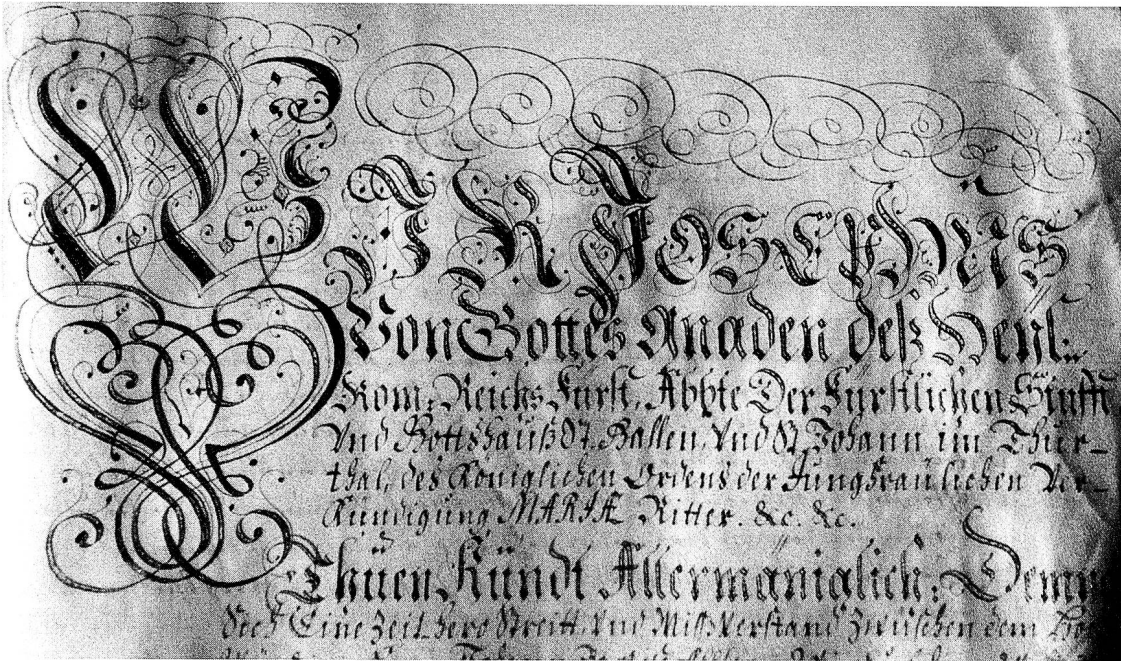 WIR JOSEPHUS
Von Gottes Gnaden deß Heyl:
Röm: Reichs Fürst, Abbte Der Fürstlichen Stüfft
Und Gottshauß St. Gallen, Und St. Johann im Thur-
thal, des Königlichen Ordens der Jungfräulichen Ver-
Kündigung MARIÆ Ritter. &c. &c.
Thuen Kundt Allermäniglich: Demn
Eine Zeit hero Streitt, Und Miß-Verstand Zwüschen dem